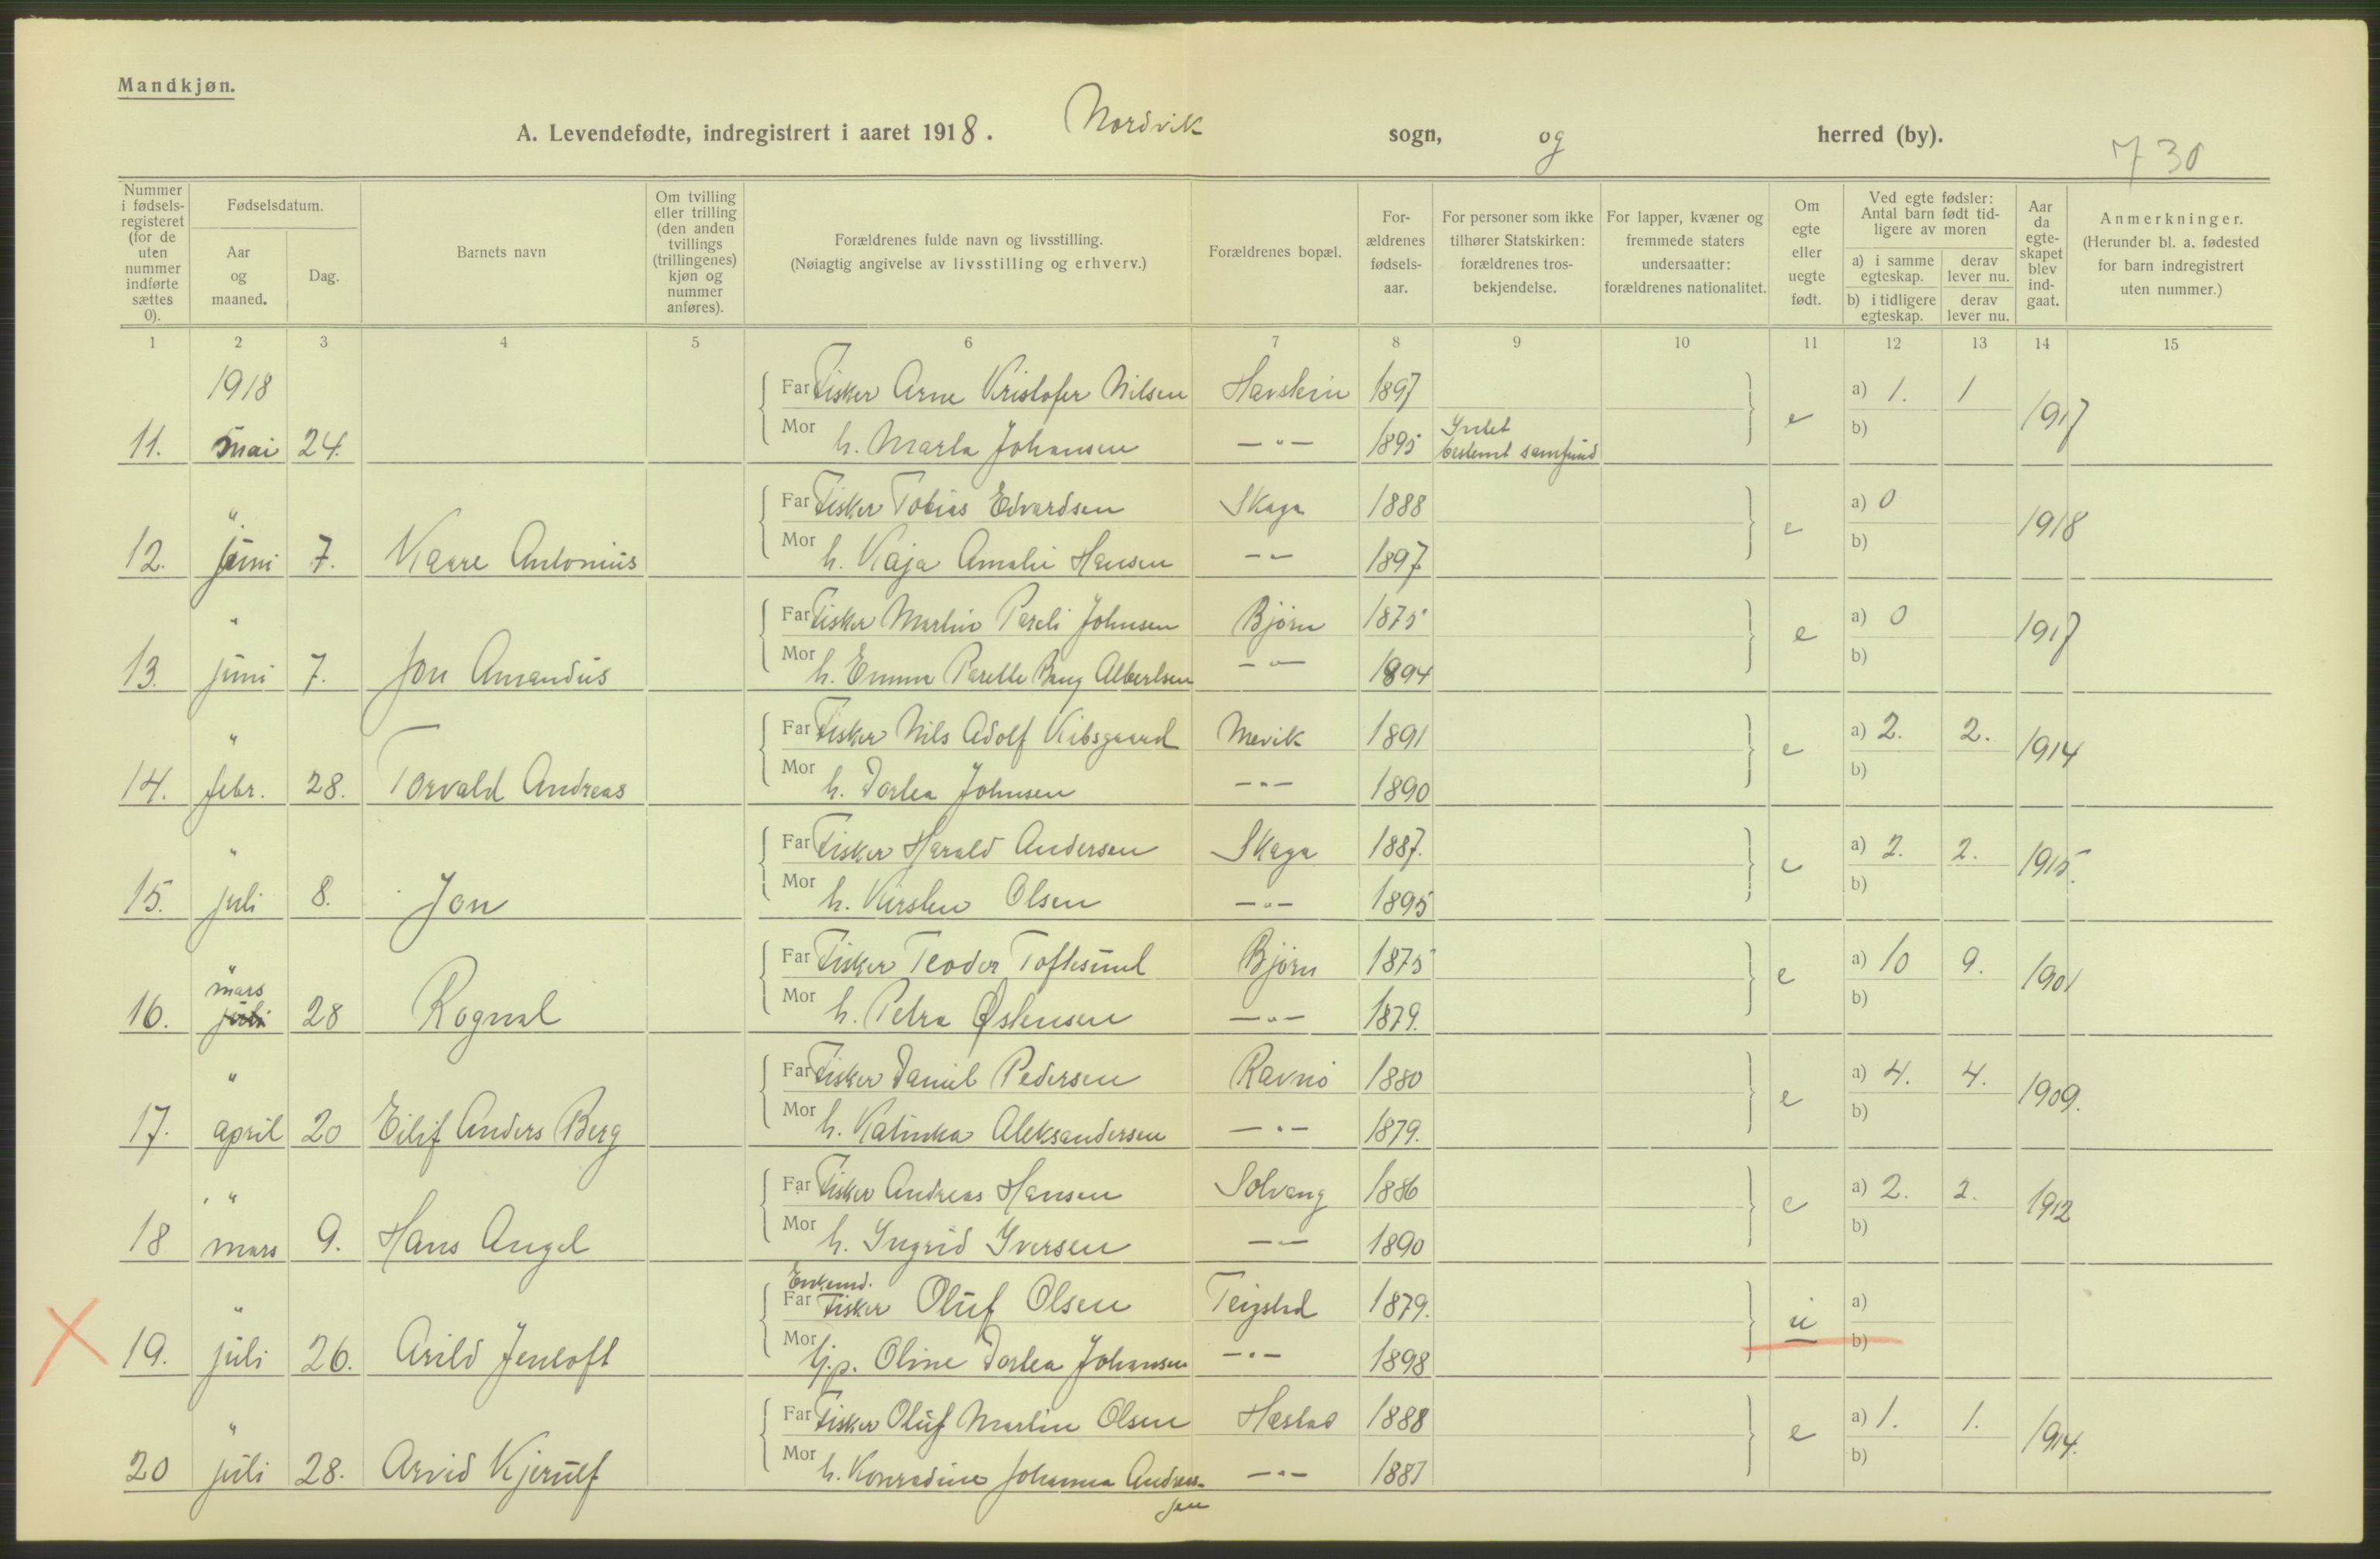 Mandkjøn.
A. Levendefødte, indregistrert i aaret 1918. Nordvik sogn, og herred (by). 730
Nummer i fødsels-registeret (for de uten nummer indførte sættes 0).
Fødselsdatum.
Aar og maaned.
Dag.
Barnets navn
Om tvilling eller trilling (den anden tvillings (trillingenes) kjøn og nummer anføres).
Forældrenes fulde navn og livsstilling.
(Nøiagtig angivelse av livsstilling og erhverv.)
Forældrenes bopæl.
For-ældrenes fødsels-aar.
For personer som ikke tilhører Statskirken: forældrenes tros-bekjendelse.
For lapper, kvæner og fremmede staters undersaatter: forældrenes nationalitet.
Om egte eller uegte født.
Ved egte fødsler: Antal barn født tid-ligere av moren
a) i samme egteskap.
derav lever nu.
b) i tidligere egteskap.
derav lever nu.
Aar da egte-skapet blev ind-gaat.
Anmerkninger.
(Herunder bl. a. fødested for barn indregistrert uten nummer.)
1 2 3 4 5 6 7 8 9 10 11 12 13 14 15
1918 Far Fisker Arne Kristofer Nilsen Havstein 1897 a) 1. 1
11. mai 24. Mor h. Marta Johansen —"— 1895 Intet bestemt samfund e b) 1917
" Far Fisker Tobias Edvardsen Skaga 1888 a) 0
12. juni 7. Kaare Antonius Mor h. Kaja Amalie Hansen —"— 1897 e b) 1918
" Far Fisker Martin Pareli Johnsen Bjørn 1875 a) 0
13. juni 7. Jon Amandus Mor h. Emma Parelle Bang Albertsen —"— 1894 e b) 1917
" Far Fisker Nils Adolf Kibsgaard Mevik 1891 a) 2. 2.
14. febr. 28. Torvald Andreas Mor h. Dortea Johnsen —"— 1890 e b) 1914
" Far Fisker Harald Andersen Skaga 1887. a) 2. 2.
15. juli 8. Jon Mor h. Kirsten Olsen —"— 1895 e b) 1915.
" mars Far Fisker Teodor Toftesund Bjørn 1875 a) 10 9.
16. juli 28 Rognal Mor h. Petra Østensen —"— 1879. e b) 1901
" Far Fisker Daniel Pedersen Ravnø 1880 a) 4. 4.
17. april 20 Eilif Anders Berg Mor h. Katinka Aleksandersen —"— 1879. e b) 1909.
" Far Fisker Andreas Hansen Solvang 1886 a) 2. 2.
18 mars 9. Hans Angel Mor h. Ingrid Iversen —"— 1890 e b) 1912
Enkemd.
" Far Fisker Oluf Olsen Teigstad 1879. a)
19. juli 26. Arild Jentoft Mor tj.p. Oline Dortea Johansen —"— 1898 u b)
" Far Fisker Oluf Martin Olsen Hæstad 1888 a) 1. 1.
20 juli 28. Arvid Kjerulf Mor h. Konradine Johanna Andreas- —"— 1887 e b) 1914.
sen